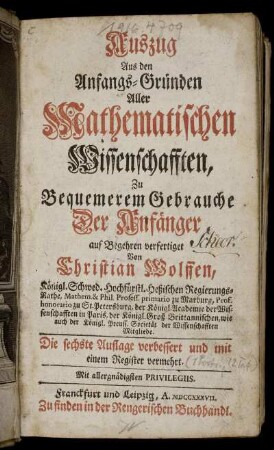 1916.4709
Auszug
Aus den
Anfangs-Gründen
Aller
Mathematischen
Wissenschafften,
Zu
Bequemerem Gebrauche
Der Anfänger
auf Begehren verfertiget
Von
Christian Wolffen,
Königl. Schwed. Hochfürstl. Heßischen Regierungs-
Rathe, Mathem. & Phil. Profess. primario zu Marburg, Prof.
honorario zu St. Petersburg, der Königl. Academie der Wis-
senschafften in Paris, der Königl. Groß Brittannischen, wie
auch der Königl. Preuss. Societät der Wissenschafften
Mitgliede.
Die sechste Auflage verbessert und mit
einem Register vermehrt.
Mit allergnädigsten PRIVILEGIIS.
Franckfurt und Leipzig, A. MDCCXXXVII.
Zu finden in der Rengerischen Buchhandl.